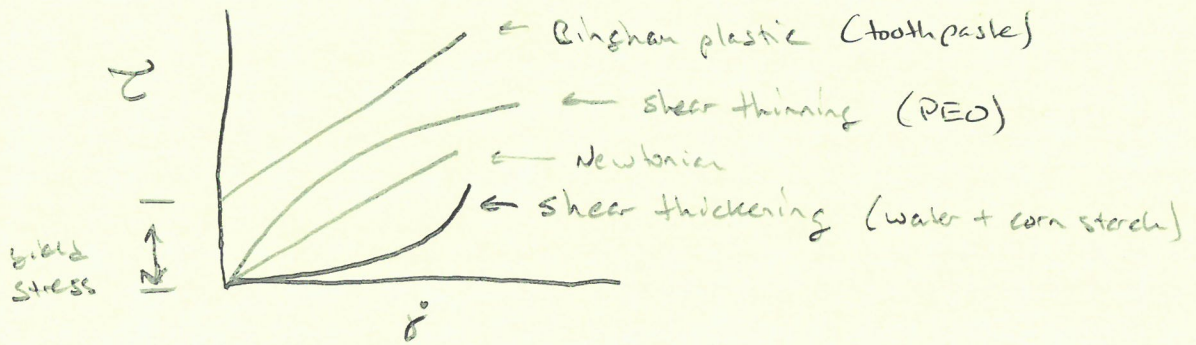 τ
← Bingham plastic (toothpaste)
← shear thinning (PEO)
← Newtonian
← shear thickening (water + corn starch)
yield
stress
γ̇